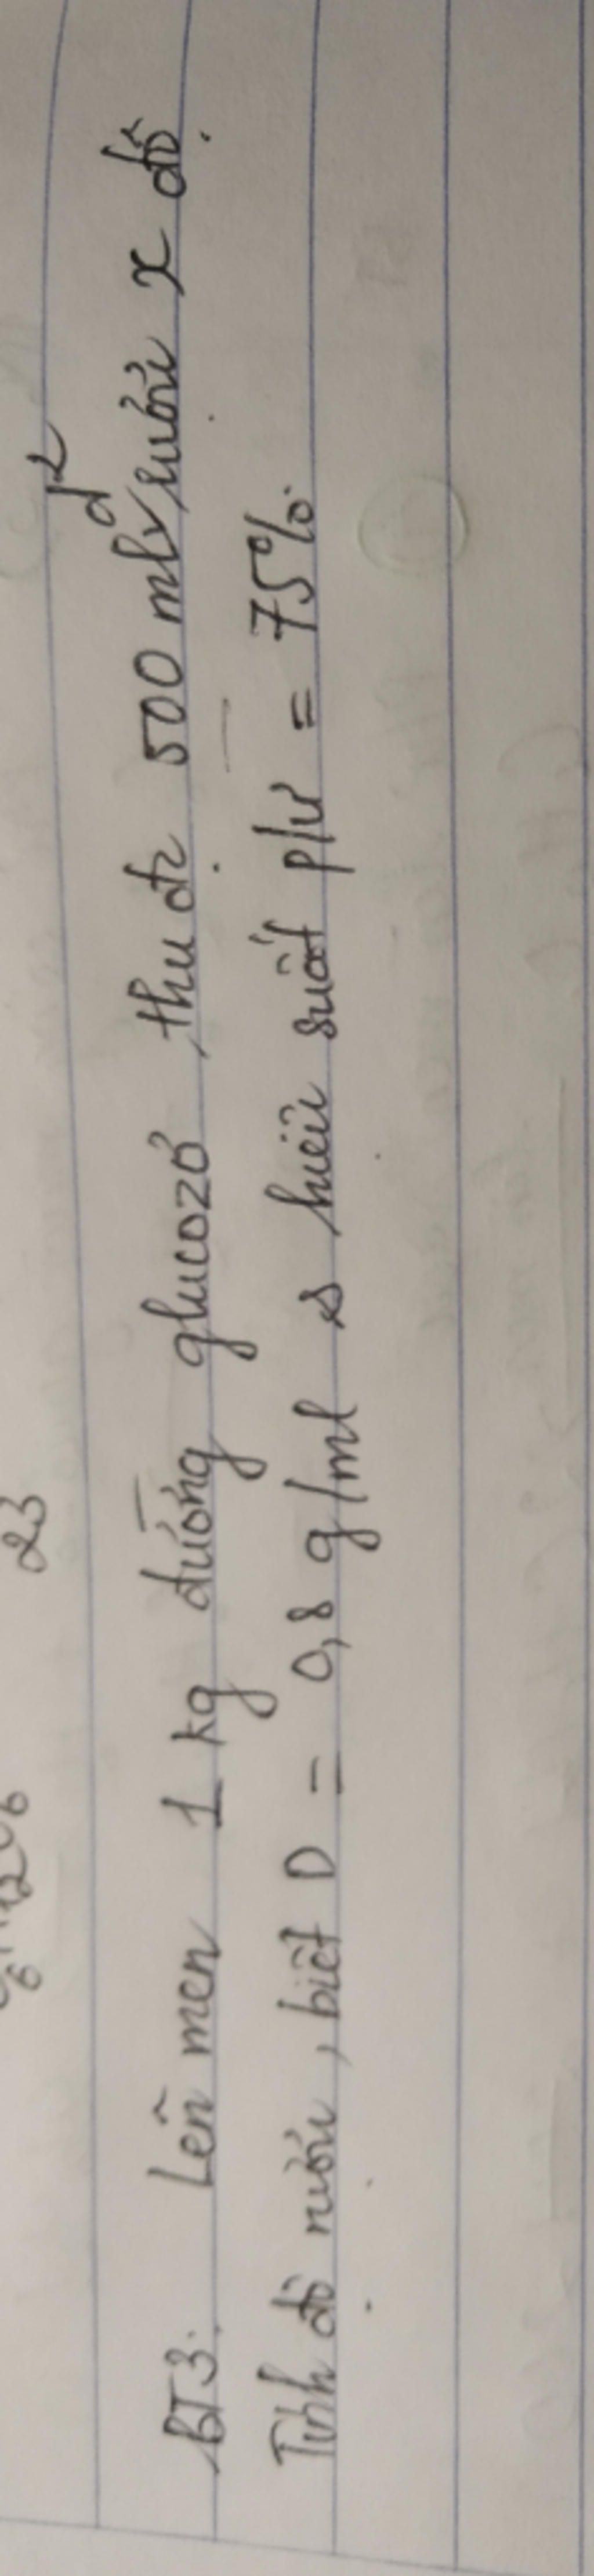 23
d²
BT3: Lên men 1 kg đường glucozơ, thu đc 500 ml rượu x độ.
Tính độ rượu, biết D = 0,8 g/ml & hiệu suất p/ư = 75%.